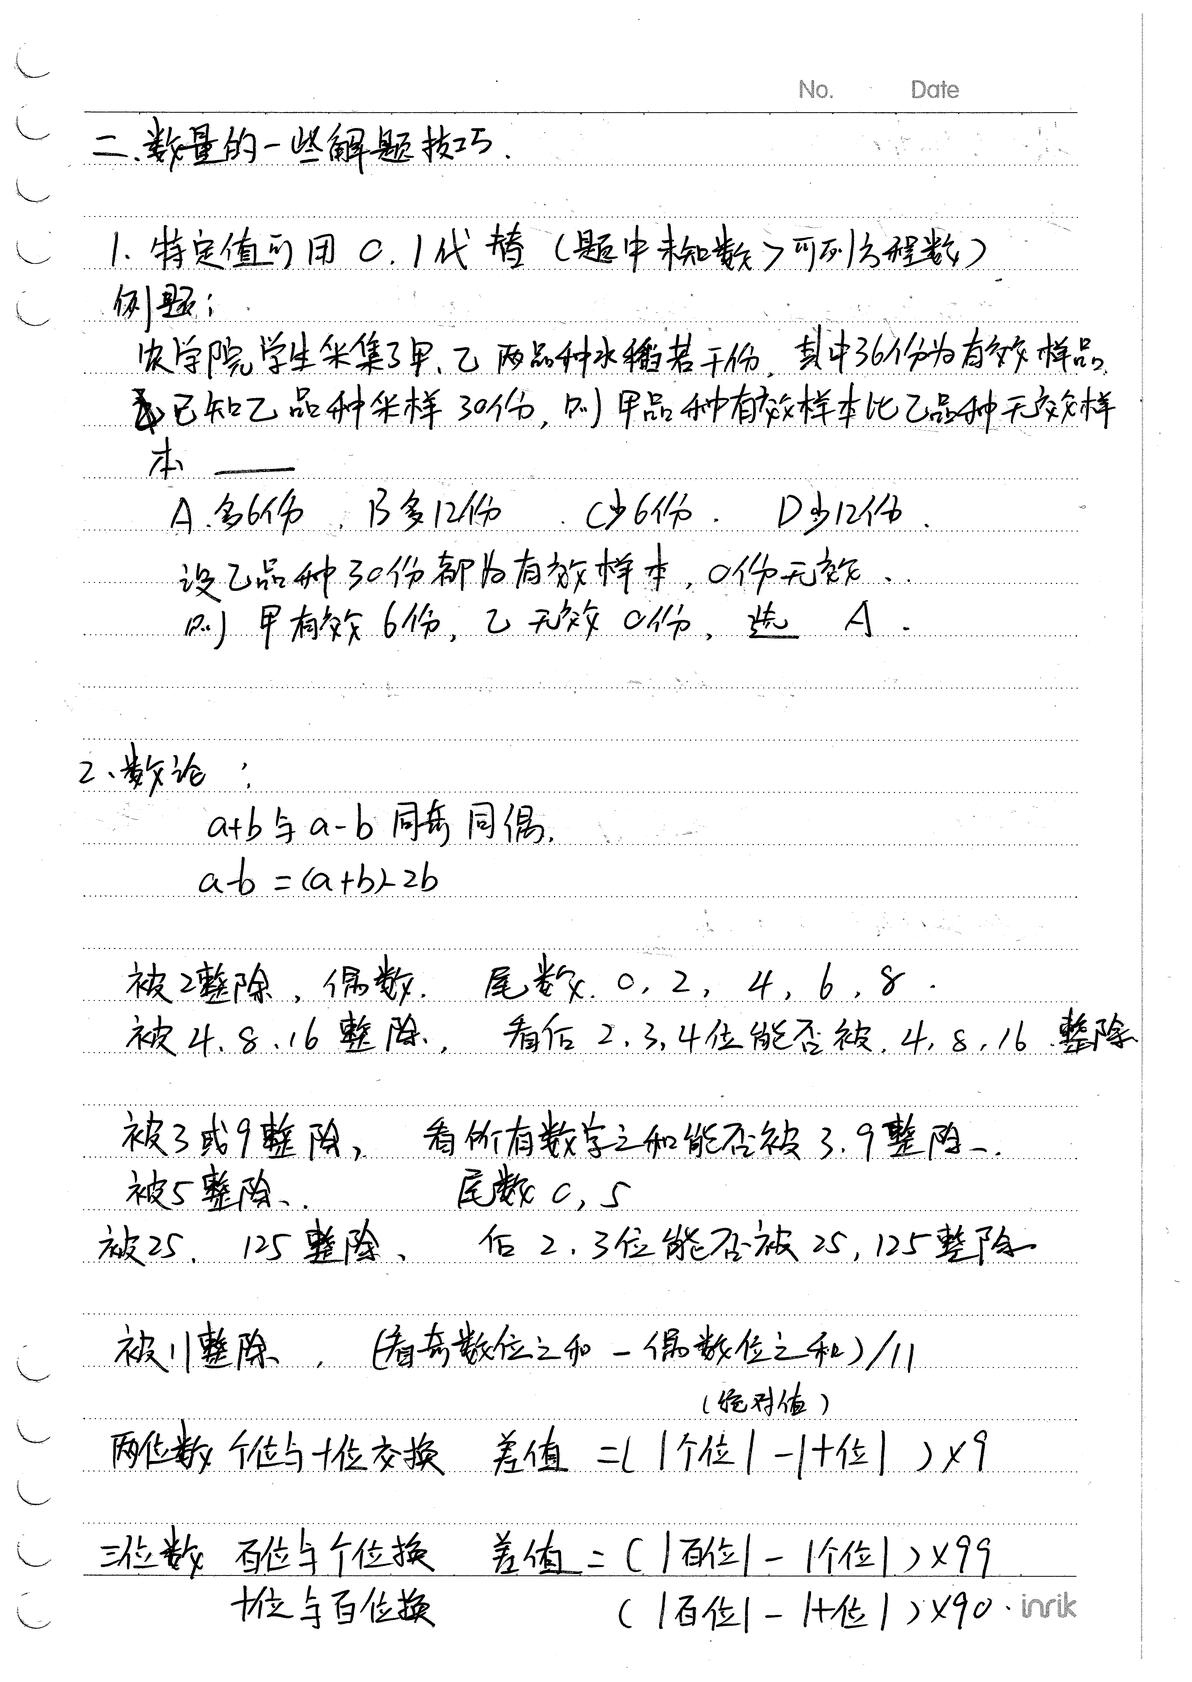 No. Date
二、数量的一些解题技巧.
1. 特定值可用 0.1代替 (题中未知数>可列方程数)
例题:
农学院学生采集了甲、乙两品种水稻若干份, 其中36份为有效样品.
已知乙品种采样30份, 则甲品种有效样本比乙品种无效样
本 ____
A.多6份 . B多12份 . C少6份. D少12份.
设乙品种30份都为有效样本, 0份无效.
则甲有效6份, 乙无效0份, 选 A.
2、数论:
a+b与a-b同奇同偶.
a-b=(a+b)-2b
被2整除, 偶数. 尾数.0, 2, 4, 6, 8.
被4.8.16整除, 看后2.3,4位能否被.4,8,16.整除
被3或9整除, 看所有数字之和能否被3.9整除.
被5整除. 尾数0,5
被25. 125整除、 后2.3位能否被25,125整除
被11整除, (看奇数位之和-偶数位之和)/11
(绝对值)
两位数 个位与十位交换 差值=(|个位|-|十位|)×9
三位数 百位与个位换 差值=(|百位|-|个位|)×99
十位与百位换 (|百位|-|十位|)×90.
inrik